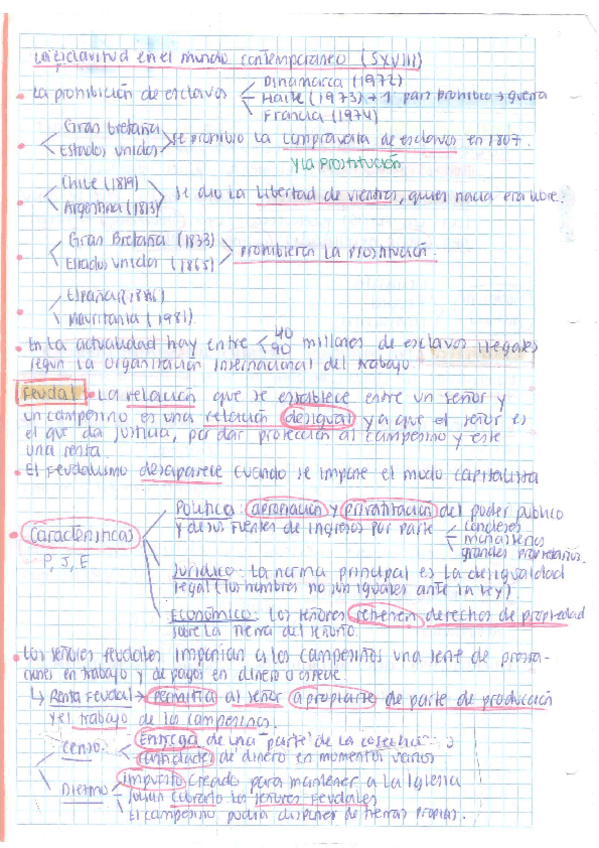 La Esclavitud en el mundo contemporaneo (SXVIII)
Dinamarca (1972)
La prohibición de esclavos Haite (1973) → 1 pais prohibio → guerra
Francia (1974)
Gran bretaña
Estados unidos se prohibio la compraventa de esclavos en 1807.
y la prostitución
Chile (1819)
Argentina (1813) se dio la libertad de vientres, quien nacia era libre.
Gran Bretaña (1833)
Estados unidos (1865) prohibieron la prostitución.
España (1886)
Mauritania (1981)
En la actualidad hay entre 40 90 millones de esclavos ilegales
según la organización internacional del trabajo.
Feudal La relación que se establece entre un señor y
un campesino es una relación desigual ya que el señor es
el que da justicia, por dar protección al campesino y este
una renta.
El Feudalismo desaparece cuando se impone el modo capitalista
Política: apropiación y privatización del poder publico
y de sus fuentes de ingresos por parte condeses
monasterios
grandes propietarios.
Características
P, J, E
Jurídico: La norma principal es la desigualdad
legal (los hombres no son iguales ante la ley)
Económico: Los señores retienen derechos de propiedad
sobre la tierra del señorío.
Los señores feudales imponían a los campesinos una serie de presta-
ciones en trabajo y de pagos en dinero o especie.
↳ Renta Feudal → permitía al señor apropiarse de parte de producción
y el trabajo de los campesinos.
Censo: Entrega de una "parte" de la cosecha
cantidades de dinero en momentos varios
Diezmo impuesto creado para mantener a la Iglesia
solían cobrarlo los señores feudales
El campesino podía disponer de tierras propias.